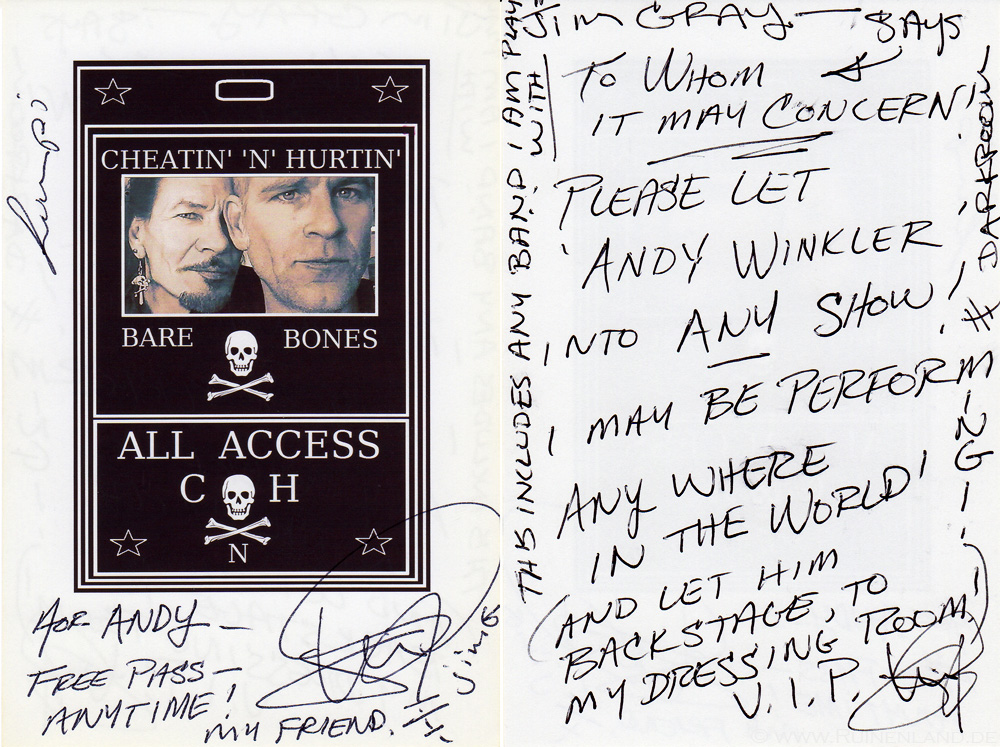 CHEATIN' 'N' HURTIN'
BARE BONES
ALL ACCESS
C H
N
FOR ANDY —
FREE PASS —
ANYTIME!
MY FRIEND.
JIM G
JIM GRAY — SAYS
TO WHOM
IT MAY CONCERN!
PLEASE LET
'ANDY WINKLER'
INTO ANY SHOW!
I MAY BE PERFORM-
-ING-
ANY WHERE
IN THE WORLD!
(AND LET HIM
BACKSTAGE, TO
MY DRESSING ROOM,)
V.I.P.
* DARKROOM
THIS INCLUDES ANY BAND I AM PLAY
WITH
© WWW.RUINENLAND.DE